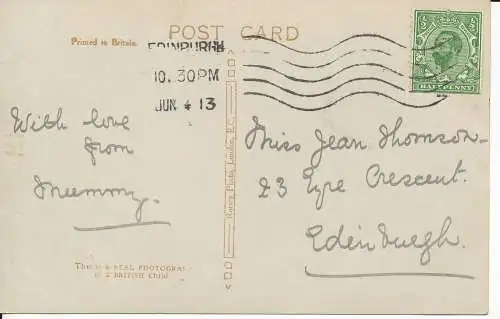 POST CARD
Printed in Britain.
EDINBURGH
10. 30PM
JUN 4 13
HALFPENNY
With love
from
Mummy.
Miss Jean Thomson
23 Eyre Crescent.
Edinburgh.
Rotary Photo, London, E.C.
This is a REAL PHOTOGRAPH
of a BRITISH